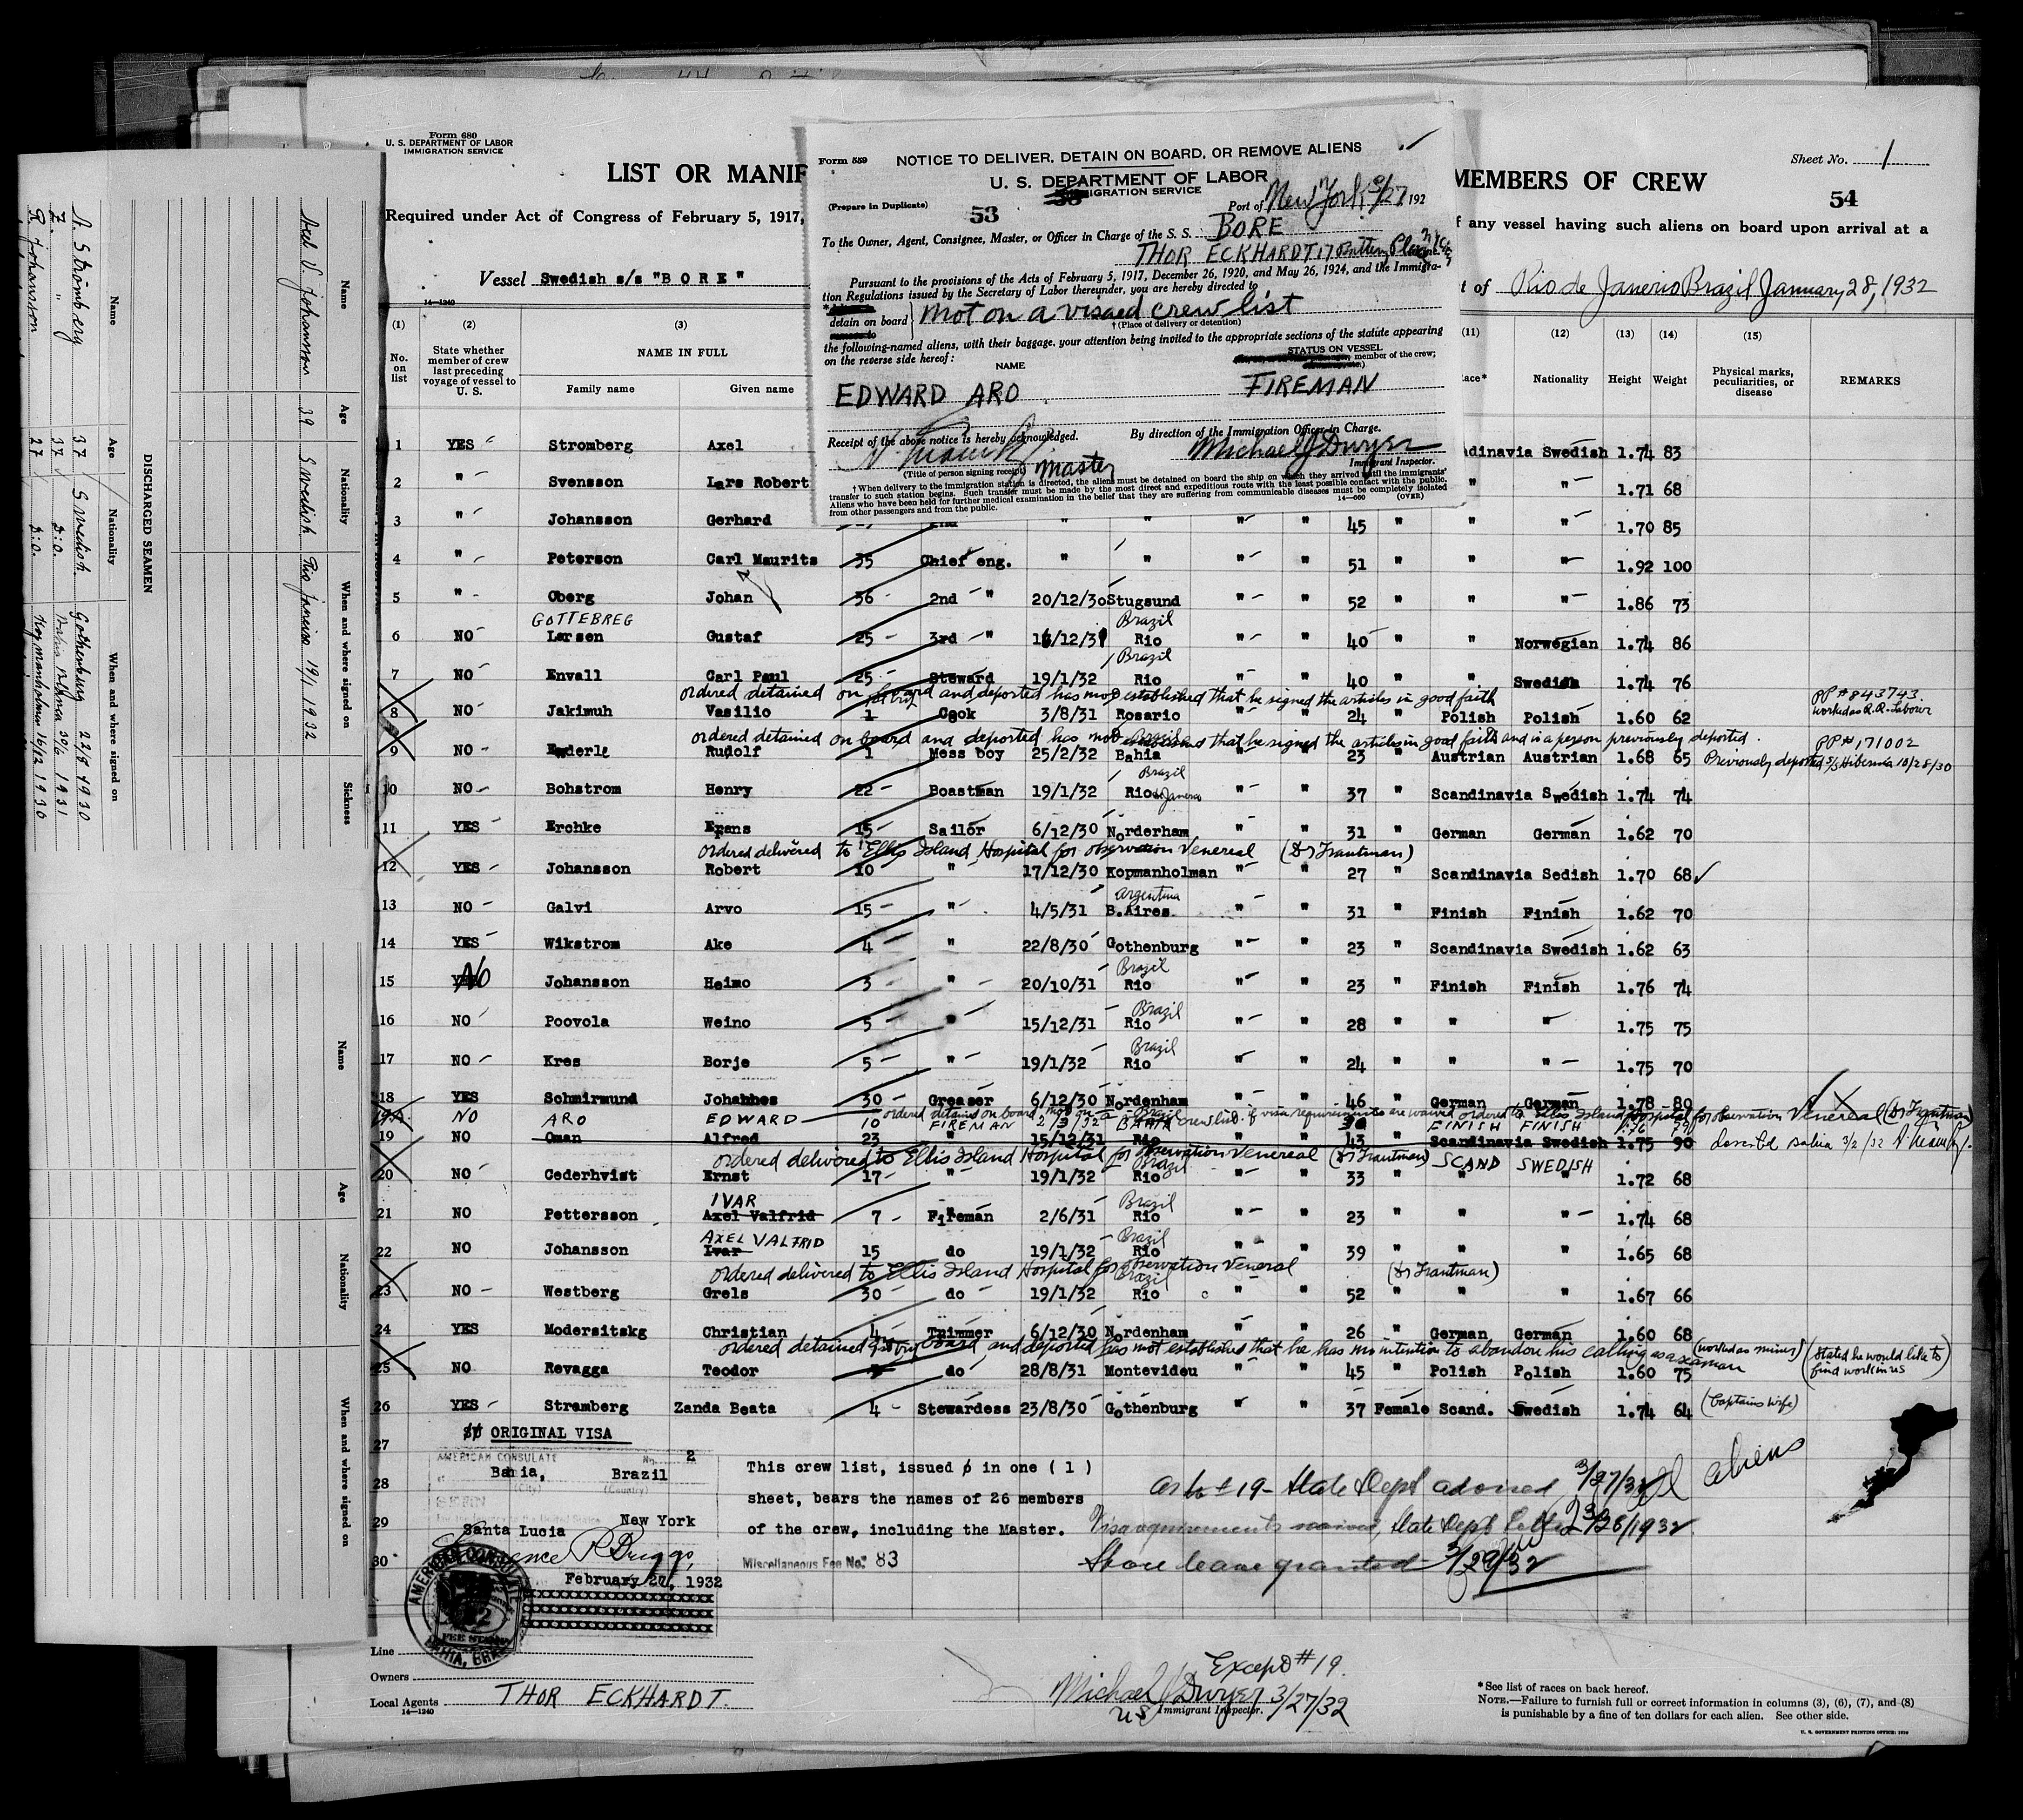 Form 680
U. S. DEPARTMENT OF LABOR
IMMIGRATION SERVICE
LIST OR MANIF
MEMBERS OF CREW
Sheet No. 1
54
Required under Act of Congress of February 5, 1917,
f any vessel having such aliens on board upon arrival at a
Vessel Swedish s/s "BORE"
t of Rio de Janerio Brazil January 28, 1932
14—1240
Form 559
NOTICE TO DELIVER, DETAIN ON BOARD, OR REMOVE ALIENS
U. S. DEPARTMENT OF LABOR
IMMIGRATION SERVICE
(Prepare in Duplicate)
53
Port of New York 3/27 192
To the Owner, Agent, Consignee, Master, or Officer in Charge of the S. S. BORE
THOR ECKHARDT 17 Battery Place
Pursuant to the provisions of the Acts of February 5, 1917, December 26, 1920, and May 26, 1924, and the Immigra-
tion Regulations issued by the Secretary of Labor thereunder, you are hereby directed to
detain on board } not on a visaed crew list
† (Place of delivery or detention)
the following-named aliens, with their baggage, your attention being invited to the appropriate sections of the statute appearing
on the reverse side hereof:
STATUS ON VESSEL
member of the crew;
NAME
EDWARD ARO FIREMAN
Receipt of the above notice is hereby acknowledged. By direction of the Immigration Officer in Charge.
Michael J Dwyer
(Title of person signing receipt) master Immigrant Inspector.
† When delivery to the immigration station is directed, the aliens must be detained on board the ship on which they arrived until the immigrants'
transfer to such station begins. Such transfer must be made by the most direct and expeditious route with the least possible contact with the public.
Aliens who have been held for further medical examination in the belief that they are suffering from communicable diseases must be completely isolated
from other passengers and from the public.
14—660 (OVER)
(1) (2) (3) (11) (12) (13) (14) (15)
No. on list
State whether member of crew last preceding voyage of vessel to U. S.
NAME IN FULL
Family name Given name
ace* Nationality Height Weight
Physical marks, peculiarities, or disease
REMARKS
1 YES Stromberg Axel dinavia Swedish 1.74 83
2 " Svensson Lars Robert " " 1.71 68
3 " Johansson Gerhard " " " " 45 " " " 1.70 85
4 " Peterson Carl Maurits 35 Chief eng. " " " " 51 " " " 1.92 100
5 " Oberg Johan 36 2nd " 20/12/30 Stugsund " " 52 " " " 1.86 73
GOTTEBREG Brazil
6 NO Larsen Gustaf 25 3rd " 16/12/31 Rio " " 40 " " Norwegian 1.74 86
Brazil
7 NO Envall Carl Paul 25 Steward 19/1/32 Rio " " 40 " " Swedish 1.74 76
ordered detained on board and deported has not established that he signed the articles in good faith PP #843743.
8 NO Jakimuh Vasilio 1 Cook 3/8/31 Rosario " " 24 " Polish Polish 1.60 62 worked as R.R. Laborer
ordered detained on board and deported has not established that he signed the articles in good faith and is a person previously deported. PP #171002
9 NO Ederle Rudolf 1 Mess boy 25/2/32 Bahia " " 23 " Austrian Austrian 1.68 65 Previously deported S/S Hibernia 10/28/30
Brazil
10 NO Bohstrom Henry 22 Boastman 19/1/32 Rio de Janerio " " 37 " Scandinavia Swedish 1.74 74
11 YES Erchke Frans 15 Sailor 6/12/30 Norderham " " 31 " German German 1.62 70
ordered delivered to Ellis Island Hospital for observation Venereal (Dr Trautman)
12 YES Johansson Robert 10 " 17/12/30 Kopmanholman " " 27 " Scandinavia Sedish 1.70 68
argentina
13 NO Galvi Arvo 15 " 4/5/31 B.Aires. " " 31 " Finish Finish 1.62 70
14 YES Wikstrom Ake 4 " 22/8/30 Gothenburg " " 23 " Scandinavia Swedish 1.62 63
Brazil
15 NO Johansson Heimo 3 " 20/10/31 Rio " " 23 " Finish Finish 1.76 74
Brazil
16 NO Poovola Weino 5 " 15/12/31 Rio " " 28 " " " 1.75 75
Brazil
17 NO Kres Borje 5 " 19/1/32 Rio " " 24 " " " 1.75 70
18 YES Schmirmund Johannes 30 Greaser 6/12/30 Nordenham " " 46 " German German 1.78 80
ordered detained on board not on a crew list. if visa requirements are waived ordered to Ellis Island Hospital for observation Venereal (Dr Trautman)
19A NO ARO EDWARD 10 FIREMAN 2/3/32 BAHIA FINISH FINISH
19 NO Oman Alfred 23 " 15/12/31 Rio " " 43 " Scandinavia Swedish 1.75 90
ordered delivered to Ellis Island Hospital for observation Venereal (Dr Trautman) SCAND SWEDISH
20 NO Cederhvist Ernst 17 " 19/1/32 Rio " " 33 " " " 1.72 68
IVAR Brazil
21 NO Pettersson Axel Valfrid 7 Fireman 2/6/31 Rio " " 23 " " " 1.74 68
AXEL VALFRID Brazil
22 NO Johansson Ivar 15 do 19/1/32 Rio " " 39 " " " 1.65 68
ordered delivered to Ellis Island Hospital for observation Veneral (Dr Trautman)
23 NO Westberg Grels 30 do 19/1/32 Rio " " 52 " " " 1.67 66
24 YES Modersitskg Christian 4 Trimmer 6/12/30 Nordenham " " 26 " German German 1.60 68
ordered detained on board and deported has not established that he has no intention to abandon his calling as a seaman (worked as miner) (Stated he would like to find work in US
25 NO Revagga Teodor do 28/8/31 Montevideu " " 45 " Polish Polish 1.60 75
26 YES Stramberg Zanda Beata 4 Stewardess 23/8/30 Gothenburg " " 37 Female Scand. Swedish 1.74 64 (Captains wife)
27 ORIGINAL VISA
28
29
30
AMERICAN CONSULATE No. 2
Bahia, Brazil
(City) (Country)
SEEN
Santa Lucia New York
Clarence P Briggs
February 27, 1932
AMERICAN CONSULATE
BAHIA, BRAZIL
FEE STAMP
This crew list, issued in one ( 1 )
sheet, bears the names of 26 members
of the crew, including the Master.
Miscellaneous Fee No. 83
as to # 19 - State Dept advised 3/27/32
aliens
Visa requirements waived, State Dept letter 3/28/1932
Shore leave granted 3/29/32
Line
Owners
Local Agents THOR ECKHARDT.
14—1240
Except #19.
Michael J Dwyer 3/27/32
US Immigrant Inspector.
* See list of races on back hereof.
NOTE.—Failure to furnish full or correct information in columns (3), (6), (7), and (8)
is punishable by a fine of ten dollars for each alien. See other side.
U. S. GOVERNMENT PRINTING OFFICE: 1930
DISCHARGED SEAMEN
Name Age Nationality When and where signed on
A. Strömberg 37 Swedish. Gothenburg 22/8 1930
Z. " 37 D:o.
R. Johansson 27 D:o. Kopmanholmen 16/12 1930
Name Age Nationality When and where signed on Sickness
Axel V. Johansson 39 Swedish Rio Janeiro 19/1 1932
Name Age Nationality When and where signed on